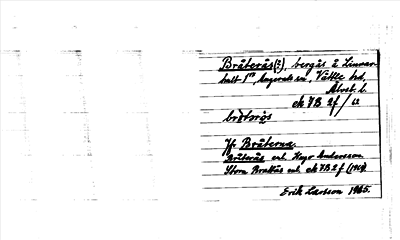 Bråterås(?), bergås å Linnar-
hult 1¹⁰, Angereds sn, Vättle hd,
Älvsb. l.
ek 7B 2f / 62
brötərös
Jfr Bråterna.
Bråterås enl. Hugo Andersson
Stora Brattås enl. ek 7B 2f (1968)
Erik Larsson 1965.